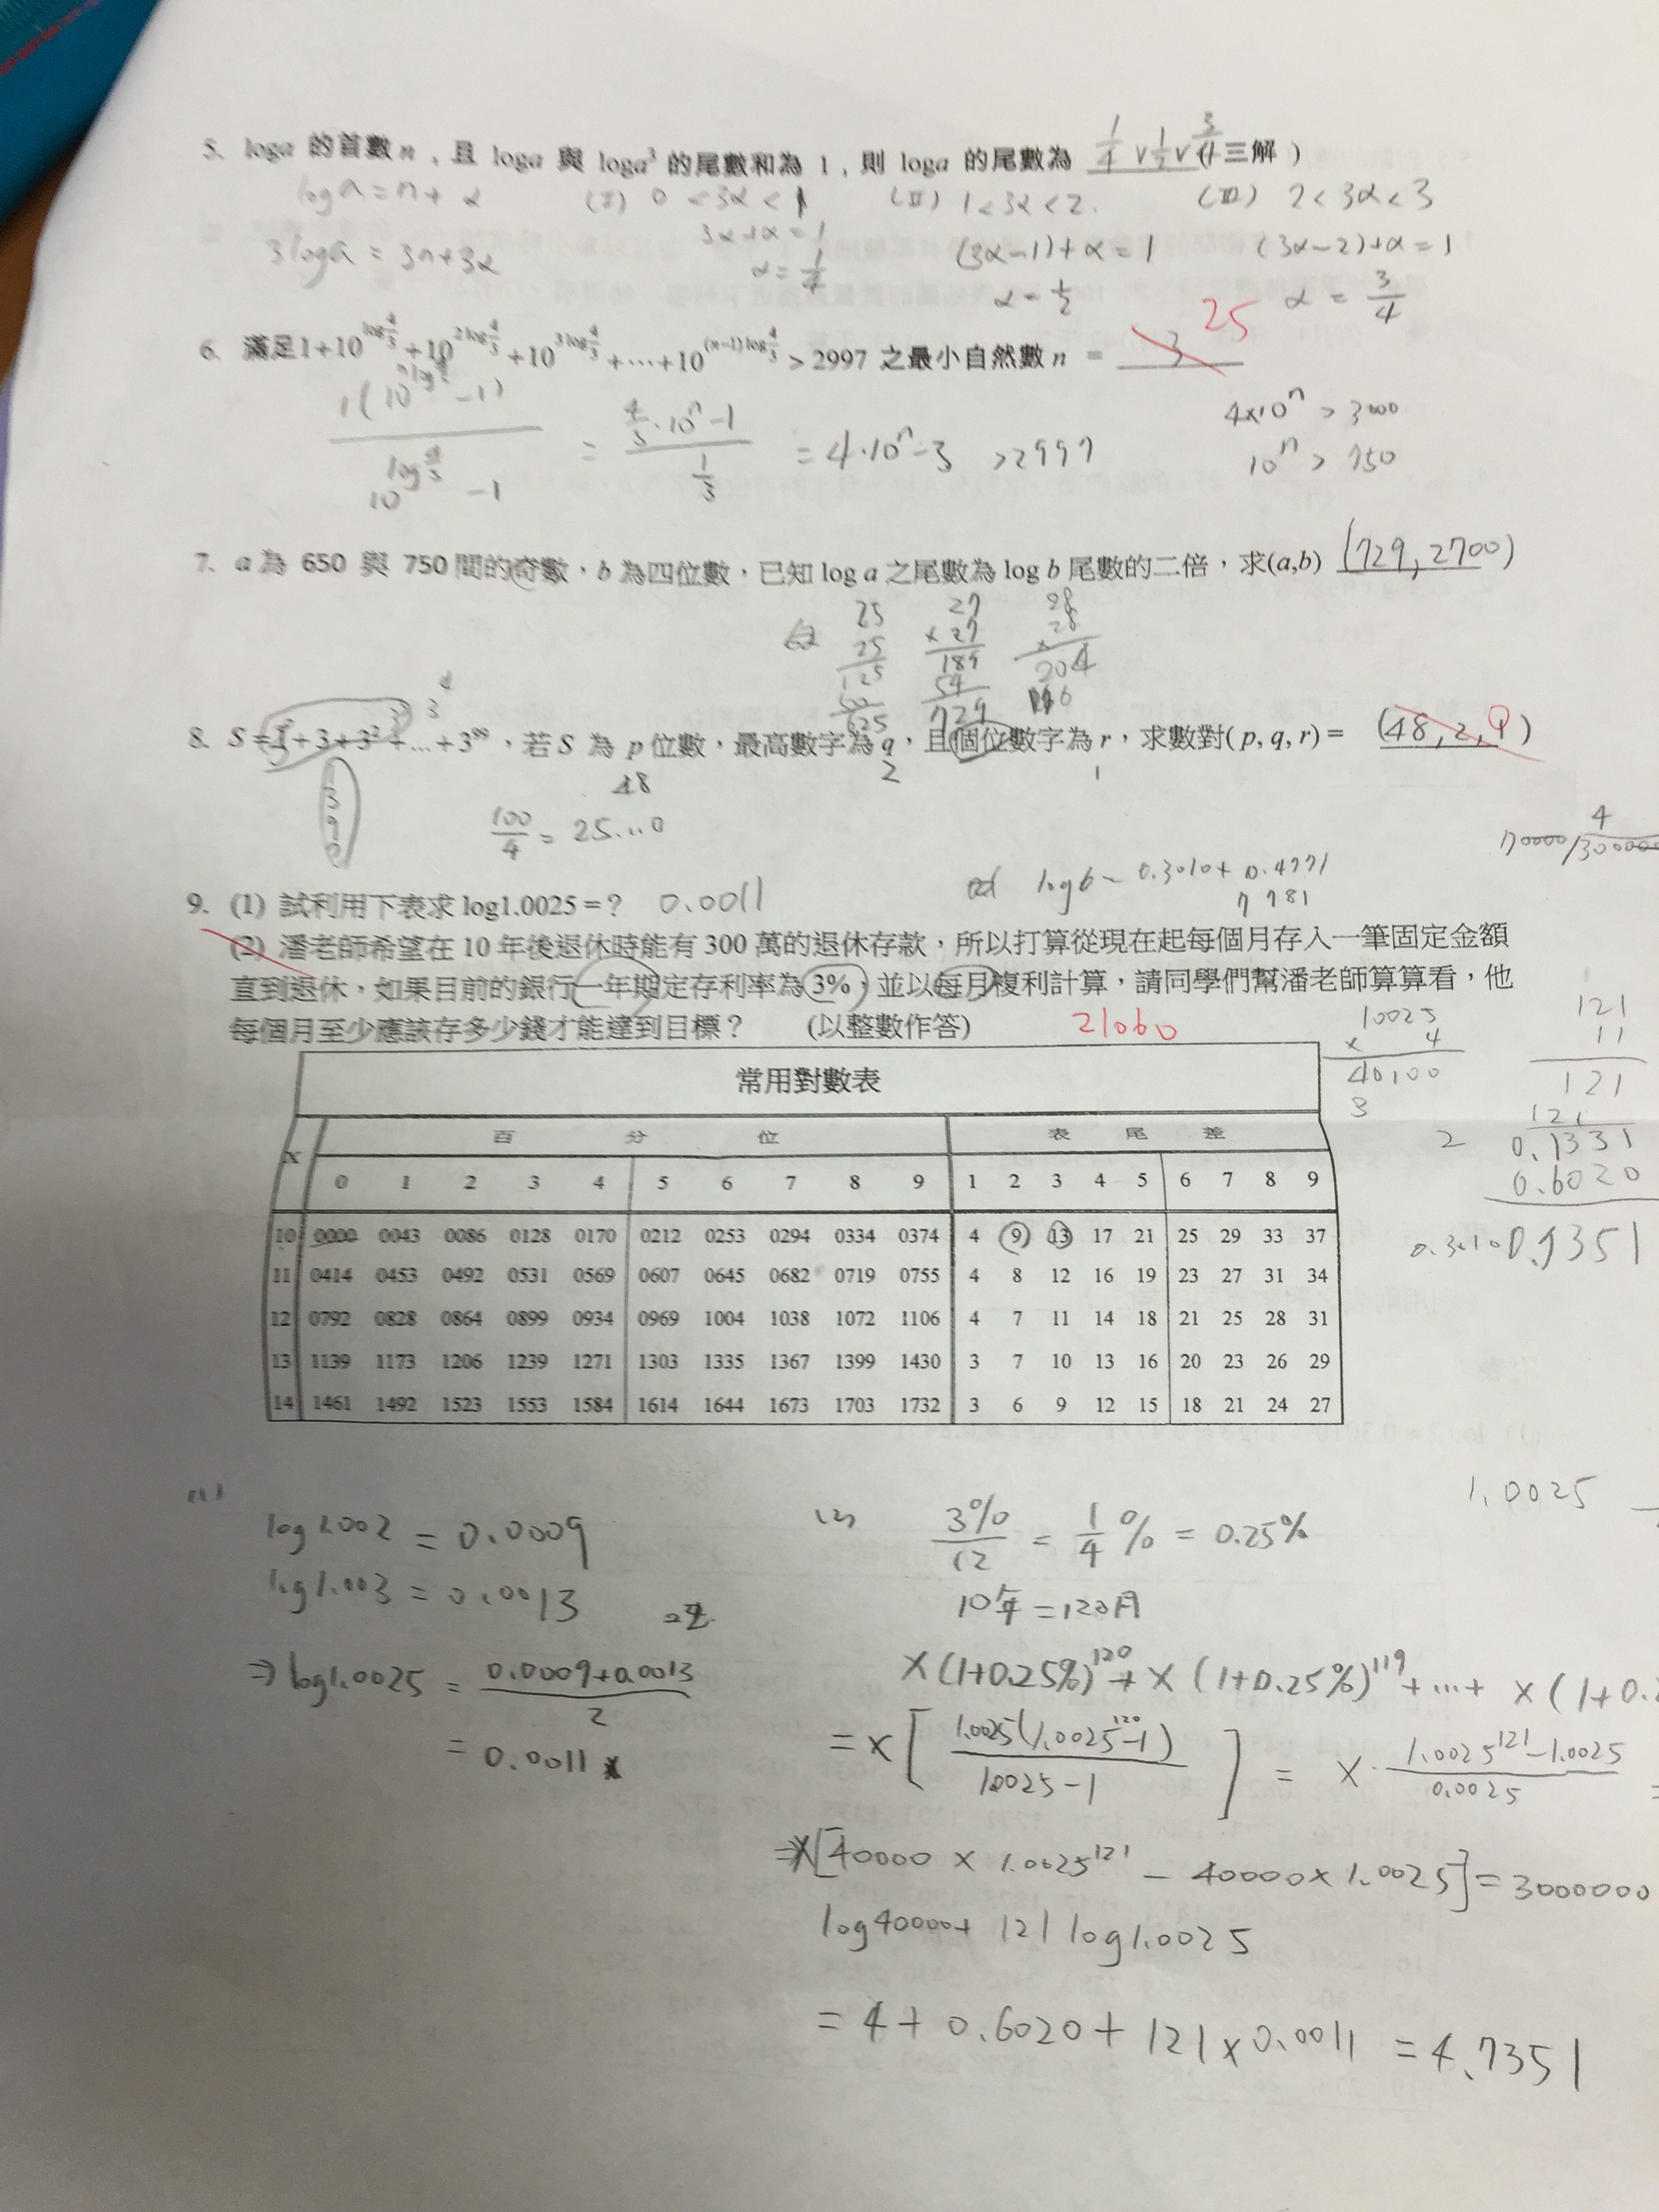 5. loga 的首數 n，且 loga 與 loga³ 的尾數和為 1，則 loga 的尾數為 1/4 ∨ 1/2 ∨ 3/4 (三解)
loga = n + α (I) 0 < 3α < 1 (II) 1 < 3α < 2. (III) 2 < 3α < 3
3loga = 3n+3α 3α+α = 1 (3α-1)+α = 1 (3α-2)+α = 1
α = 1/4 α = 1/2 α = 3/4
25
6. 滿足1+10^(log 4/3)+10^(2log 4/3)+10^(3log 4/3)+…+10^((n-1)log 4/3) > 2997 之最小自然數 n = 3
= 4·10ⁿ-3 >2997
4×10ⁿ > 3000
10ⁿ > 750
7. a 為 650 與 750 間的奇數，b 為四位數，已知 log a 之尾數為 log b 尾數的二倍，求(a,b) (729, 2700)
25 27 28
25 × 27 × 28
125 189 204
50 54
625 729
3³ 3⁴
8. S = 1 + 3 + 3² + ... + 3⁹⁹，若 S 為 p 位數，最高數字為 q，且個位數字為 r，求數對( p, q, r) = (48, 2, 9)
48 2 1
1
3
9
100/4 = 25...0
log6 = 0.3010+ 0.4771
7781
9. (1) 試利用下表求 log1.0025 = ? 0.0011
(2) 潘老師希望在 10 年後退休時能有 300 萬的退休存款，所以打算從現在起每個月存入一筆固定金額
直到退休，如果目前的銀行一年期定存利率為 3%，並以每月複利計算，請同學們幫潘老師算算看，他
每個月至少應該存多少錢才能達到目標？ (以整數作答) 21060
10025
× 4
40100
3
121
11
121
121
2 0.1331
0.6020
0.3010 0.7351
常用對數表
x 百 分 位 表 尾 差
0 1 2 3 4 5 6 7 8 9 1 2 3 4 5 6 7 8 9
10 0000 0043 0086 0128 0170 0212 0253 0294 0334 0374 4 9 13 17 21 25 29 33 37
11 0414 0453 0492 0531 0569 0607 0645 0682 0719 0755 4 8 12 16 19 23 27 31 34
12 0792 0828 0864 0899 0934 0969 1004 1038 1072 1106 4 7 11 14 18 21 25 28 31
13 1139 1173 1206 1239 1271 1303 1335 1367 1399 1430 3 7 10 13 16 20 23 26 29
14 1461 1492 1523 1553 1584 1614 1644 1673 1703 1732 3 6 9 12 15 18 21 24 27
1.0025
(1)
log1.002 = 0.0009
log1.003 = 0.0013
⇒ log1.0025 = (0.0009+0.0013)/2
= 0.0011
(2) 3%/12 = 1/4 % = 0.25%
10年 = 120月
x(1+0.25%)¹²⁰ + x(1+0.25%)¹¹⁹ + … + x(1+0.2
= x[1.0025(1.0025¹²⁰-1)/(1.0025-1)] = x · (1.0025¹²¹-1.0025)/0.0025 =
⇒ x[40000 × 1.0025¹²¹ - 40000×1.0025] = 3000000
log40000 + 121 log1.0025
= 4 + 0.6020 + 121×0.0011 = 4.7351